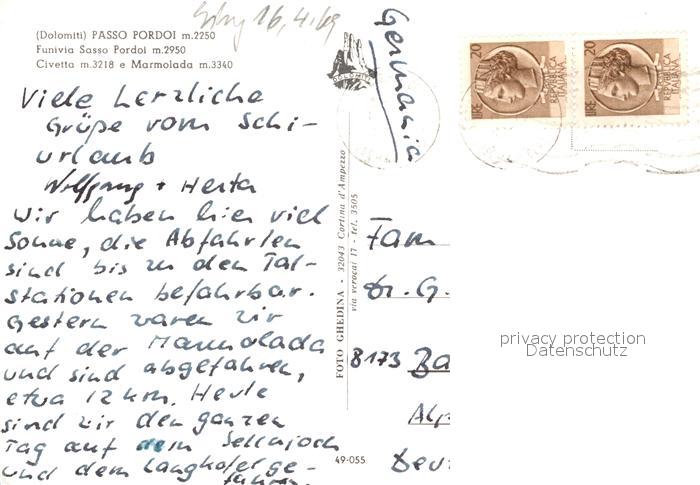 Eing 16.4.69
(Dolomiti) PASSO PORDOI m.2250
Funivia Sasso Pordoi m.2950
Civetta m.3218 e Marmolada m.3340
Viele herzliche
Grüße vom Schi-
urlaub
Wolfgang + Herta
Wir haben hier viel
Sonne, die Abfahrten
sind bis zu den Tal-
stationen befahrbar.
Gestern waren wir
auf der Marmolada
und sind abgefahren,
etwa 12 km. Heute
sind wir den ganzen
Tag auf dem Sellajoch
und dem Langkofel ge-
fahren.
DOLOMITI
FOTO GHEDINA - 32043 Cortina d'Ampezzo
via verocai 17 - tel. 3505
49-055
Germania
20
LIRE
REPUBBLICA
ITALIANA
20
LIRE
REPUBBLICA
ITALIANA
Fam
Dr. G.
8173 Ba
Alp
Deu
privacy protection
Datenschutz